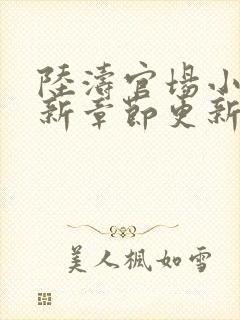 陸濤官場小
新章節更新
美人楓如雪